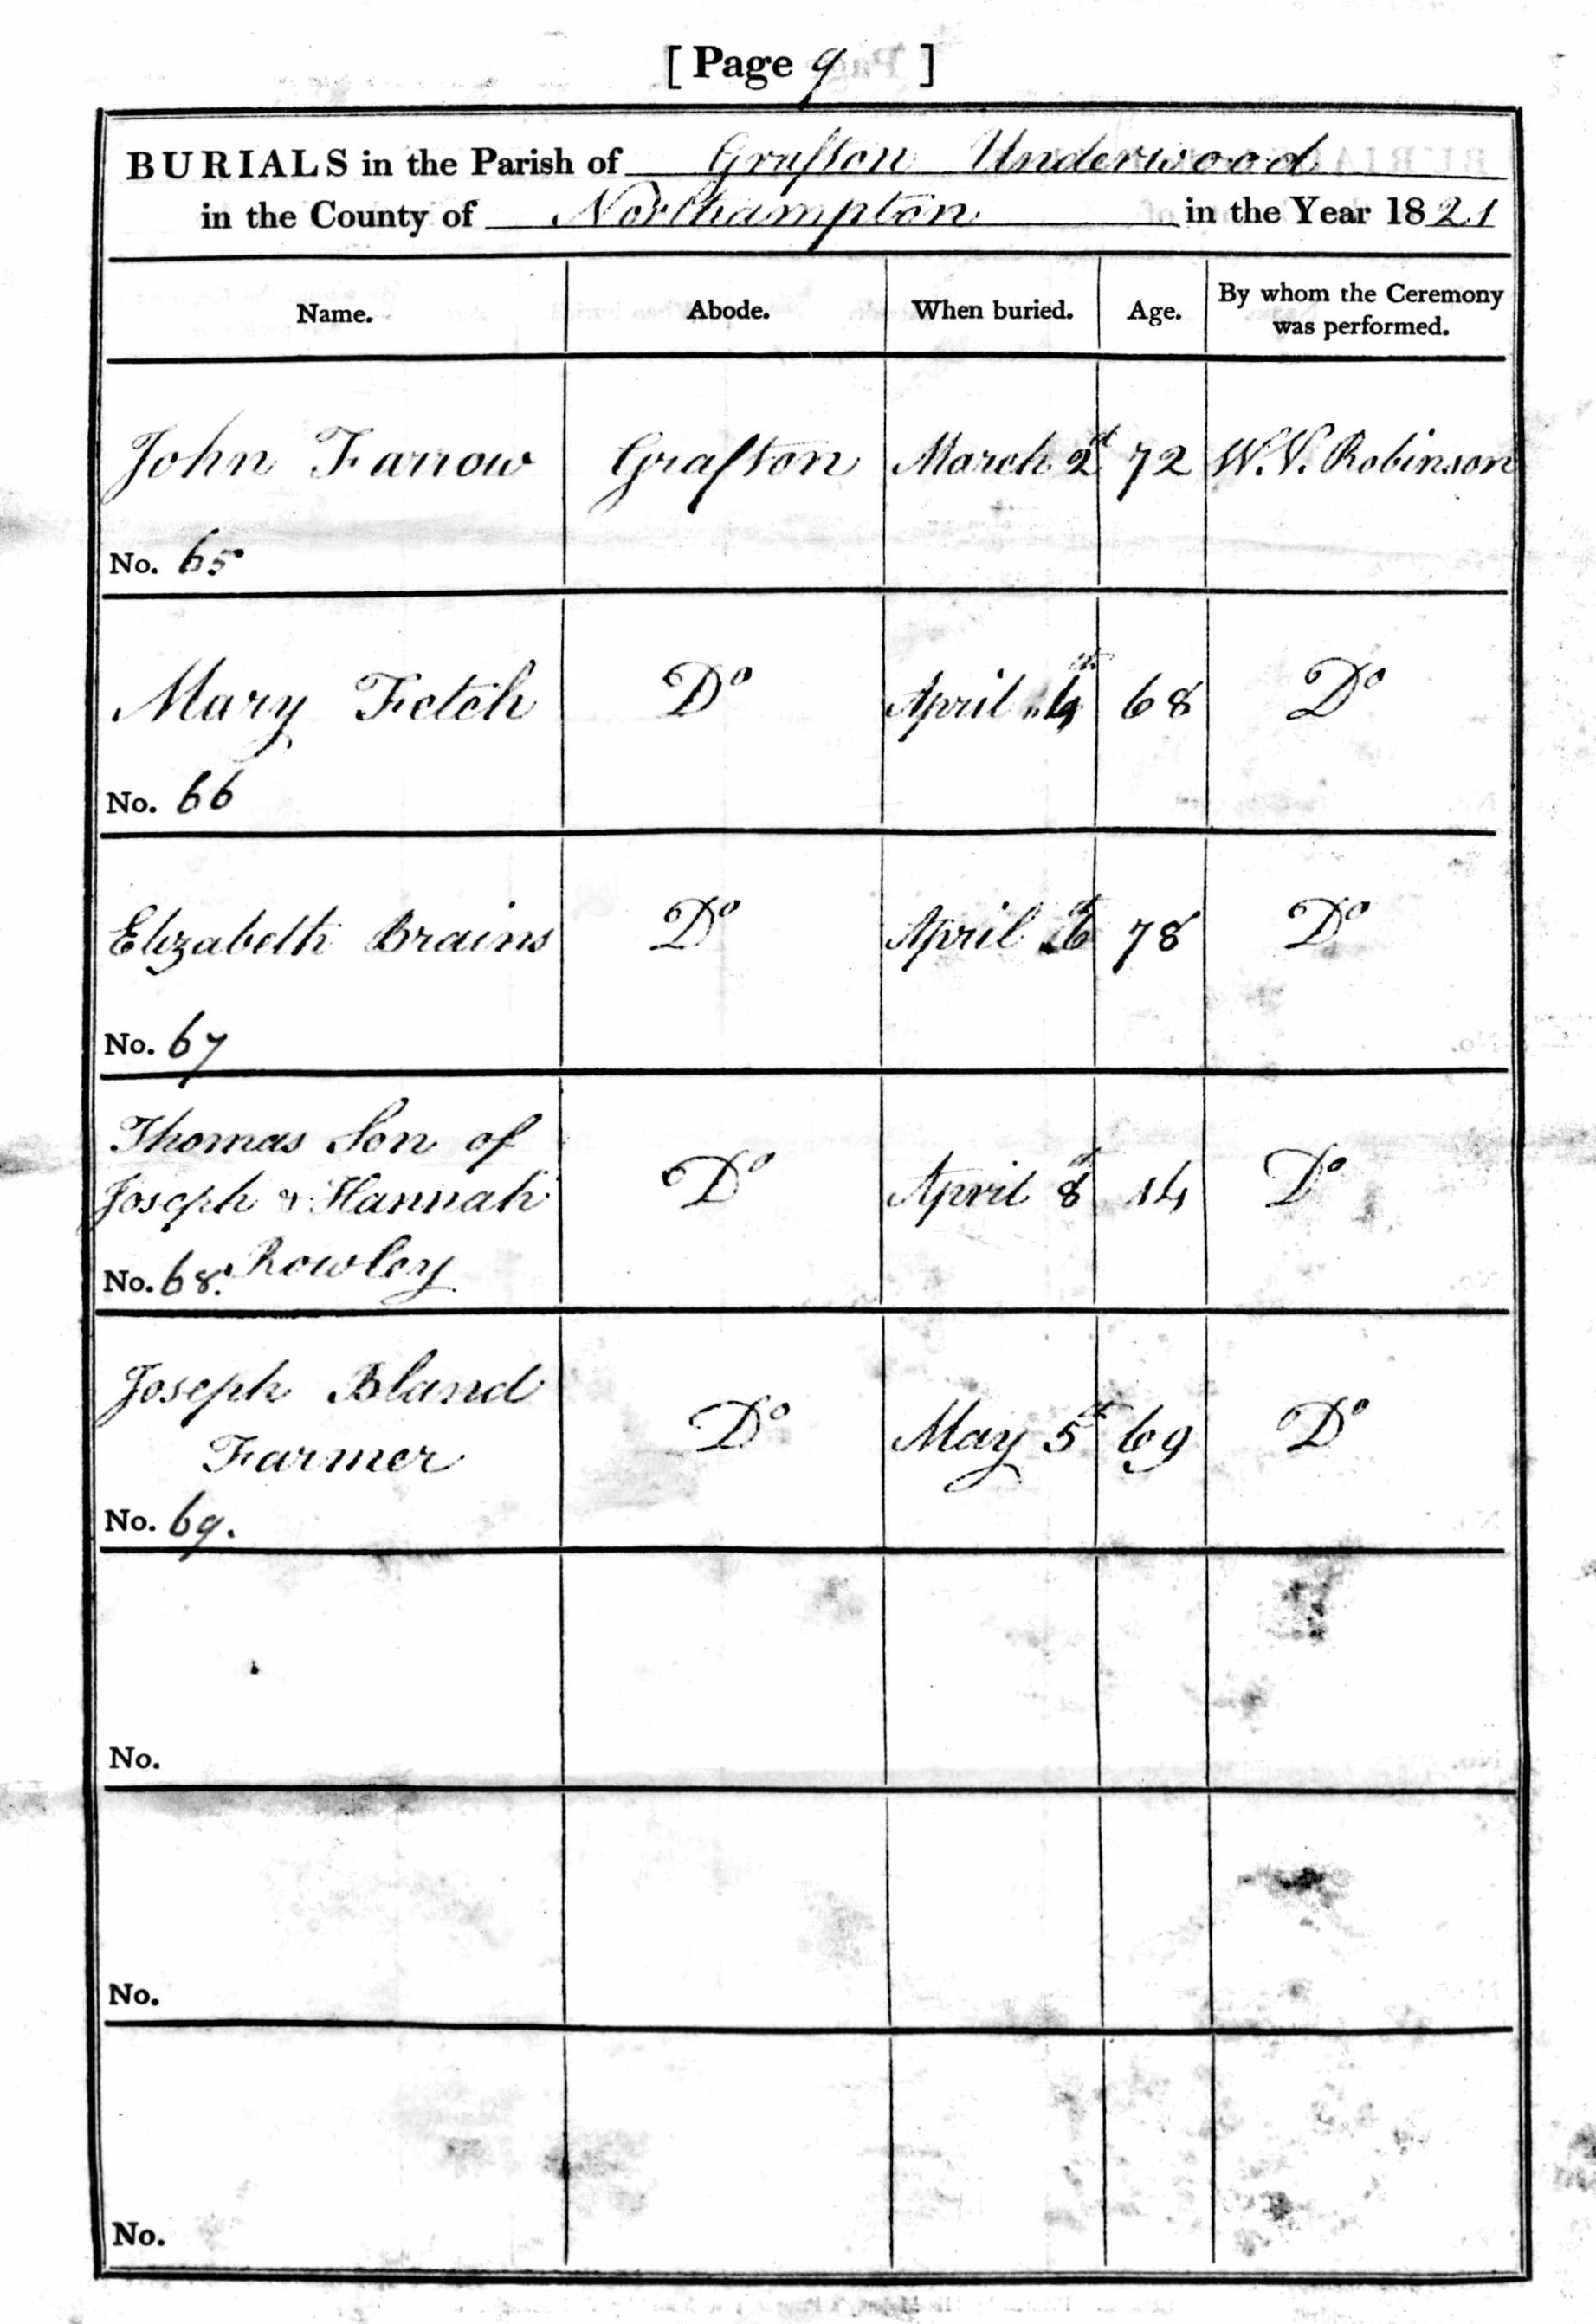 [ Page 9 ]
BURIALS in the Parish of Grafton Underwood
in the County of Northampton in the Year 1821
Name. Abode. When buried. Age. By whom the Ceremony was performed.
John Farrow Grafton March 2d 72 W. V. Robinson
No. 65
Mary Fetch Do April 4th 68 Do
No. 66
Elizabeth Brains Do April 6th 78 Do
No. 67
Thomas Son of
Joseph & Hannah Do April 8th 14 Do
No. 68. Rowley
Joseph Bland
Farmer Do May 5th 69 Do
No. 69.
No.
No.
No.